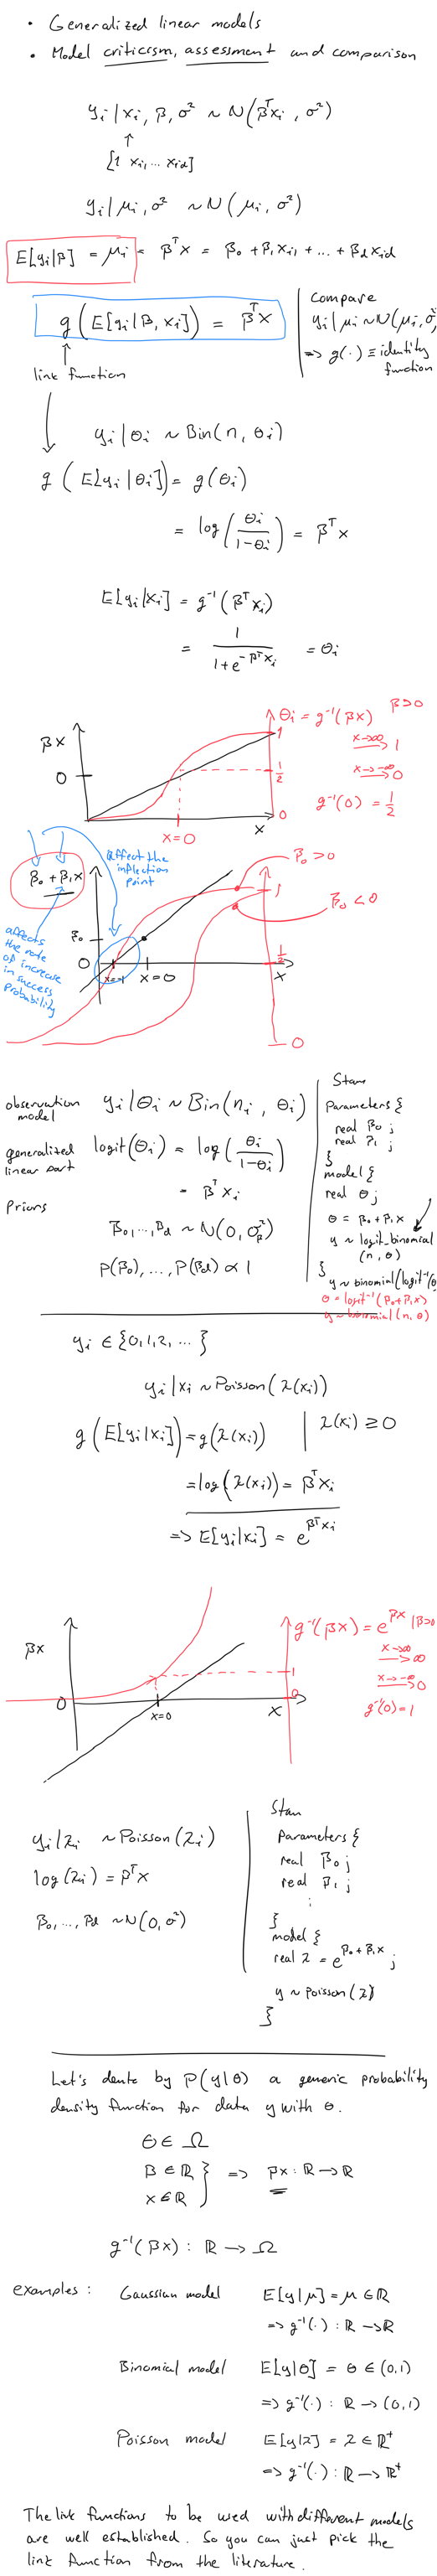 • Generalized linear models
• Model criticism, assessment and comparison
y_i | x_i, β, σ² ~ N(β^T x_i, σ²)
↑
[1 x_i1 ... x_id]
y_i | μ_i, σ² ~ N(μ_i, σ²)
E[y_i|β] = μ_i = β^T x = β_0 + β_1 x_i1 + ... + β_d x_id
g(E[y_i|β, x_i]) = β^T x
↑
link function
compare
y_i | μ_i ~ N(μ_i, σ²)
=> g(·) ≡ identity
function
y_i | θ_i ~ Bin(n, θ_i)
g(E[y_i|θ_i]) = g(θ_i)
= log(θ_i / (1-θ_i)) = β^T x
E[y_i|x_i] = g⁻¹(β^T x_i)
= 1 / (1+e^(-β^T x_i)) = θ_i
βx
0
x=0
x
θ_i = g⁻¹(βx) β>0
1
1/2
0
x→∞ → 1
x→-∞ → 0
g⁻¹(0) = 1/2
β_0 + β_1 x
affect the
inflection
point
affects
the rate
of increase
in success
probability
β_0
0
x=-1
x=0
x
β_0 > 0
β_0 < 0
1
1/2
0
observation
model
y_i | θ_i ~ Bin(n_i, θ_i)
generalized
linear part
logit(θ_i) = log(θ_i / (1-θ_i))
= β^T x_i
Priors
β_0, ..., β_d ~ N(0, σ_β²)
p(β_0), ..., p(β_d) ∝ 1
Stan
parameters {
real β_0;
real β_1;
}
model {
real θ;
θ = β_0 + β_1 x
y ~ logit_binomial
(n, θ)
}
y ~ binomial(logit⁻¹(θ
θ = logit⁻¹(β_0 + β_1 x)
y ~ binomial(n, θ)
y_i ∈ {0, 1, 2, ...}
y_i | x_i ~ Poisson(λ(x_i))
g(E[y_i|x_i]) = g(λ(x_i)) | λ(x_i) ≥ 0
= log(λ(x_i)) = β^T x_i
=> E[y_i|x_i] = e^(β^T x_i)
βx
0
x=0
x
g⁻¹(βx) = e^(βx) | β>0
1
0
x→∞ → ∞
x→-∞ → 0
g⁻¹(0) = 1
y_i | λ_i ~ Poisson(λ_i)
log(λ_i) = β^T x
β_0, ..., β_d ~ N(0, σ²)
Stan
parameters {
real β_0;
real β_1;
⋮
}
model {
real λ = e^(β_0 + β_1 x);
y ~ poisson(λ)
}
Let's denote by P(y|θ) a generic probability
density function for data y with θ.
θ ∈ Ω
β ∈ ℝ
x ∈ ℝ
} => βx : ℝ → ℝ
g⁻¹(βx) : ℝ → Ω
examples : Gaussian model E[y|μ] = μ ∈ ℝ
=> g⁻¹(·) : ℝ → ℝ
Binomial model E[y|θ] = θ ∈ (0,1)
=> g⁻¹(·) : ℝ → (0,1)
Poisson model E[y|λ] = λ ∈ ℝ⁺
=> g⁻¹(·) : ℝ → ℝ⁺
The link functions to be used with different models
are well established. So you can just pick the
link function from the literature.